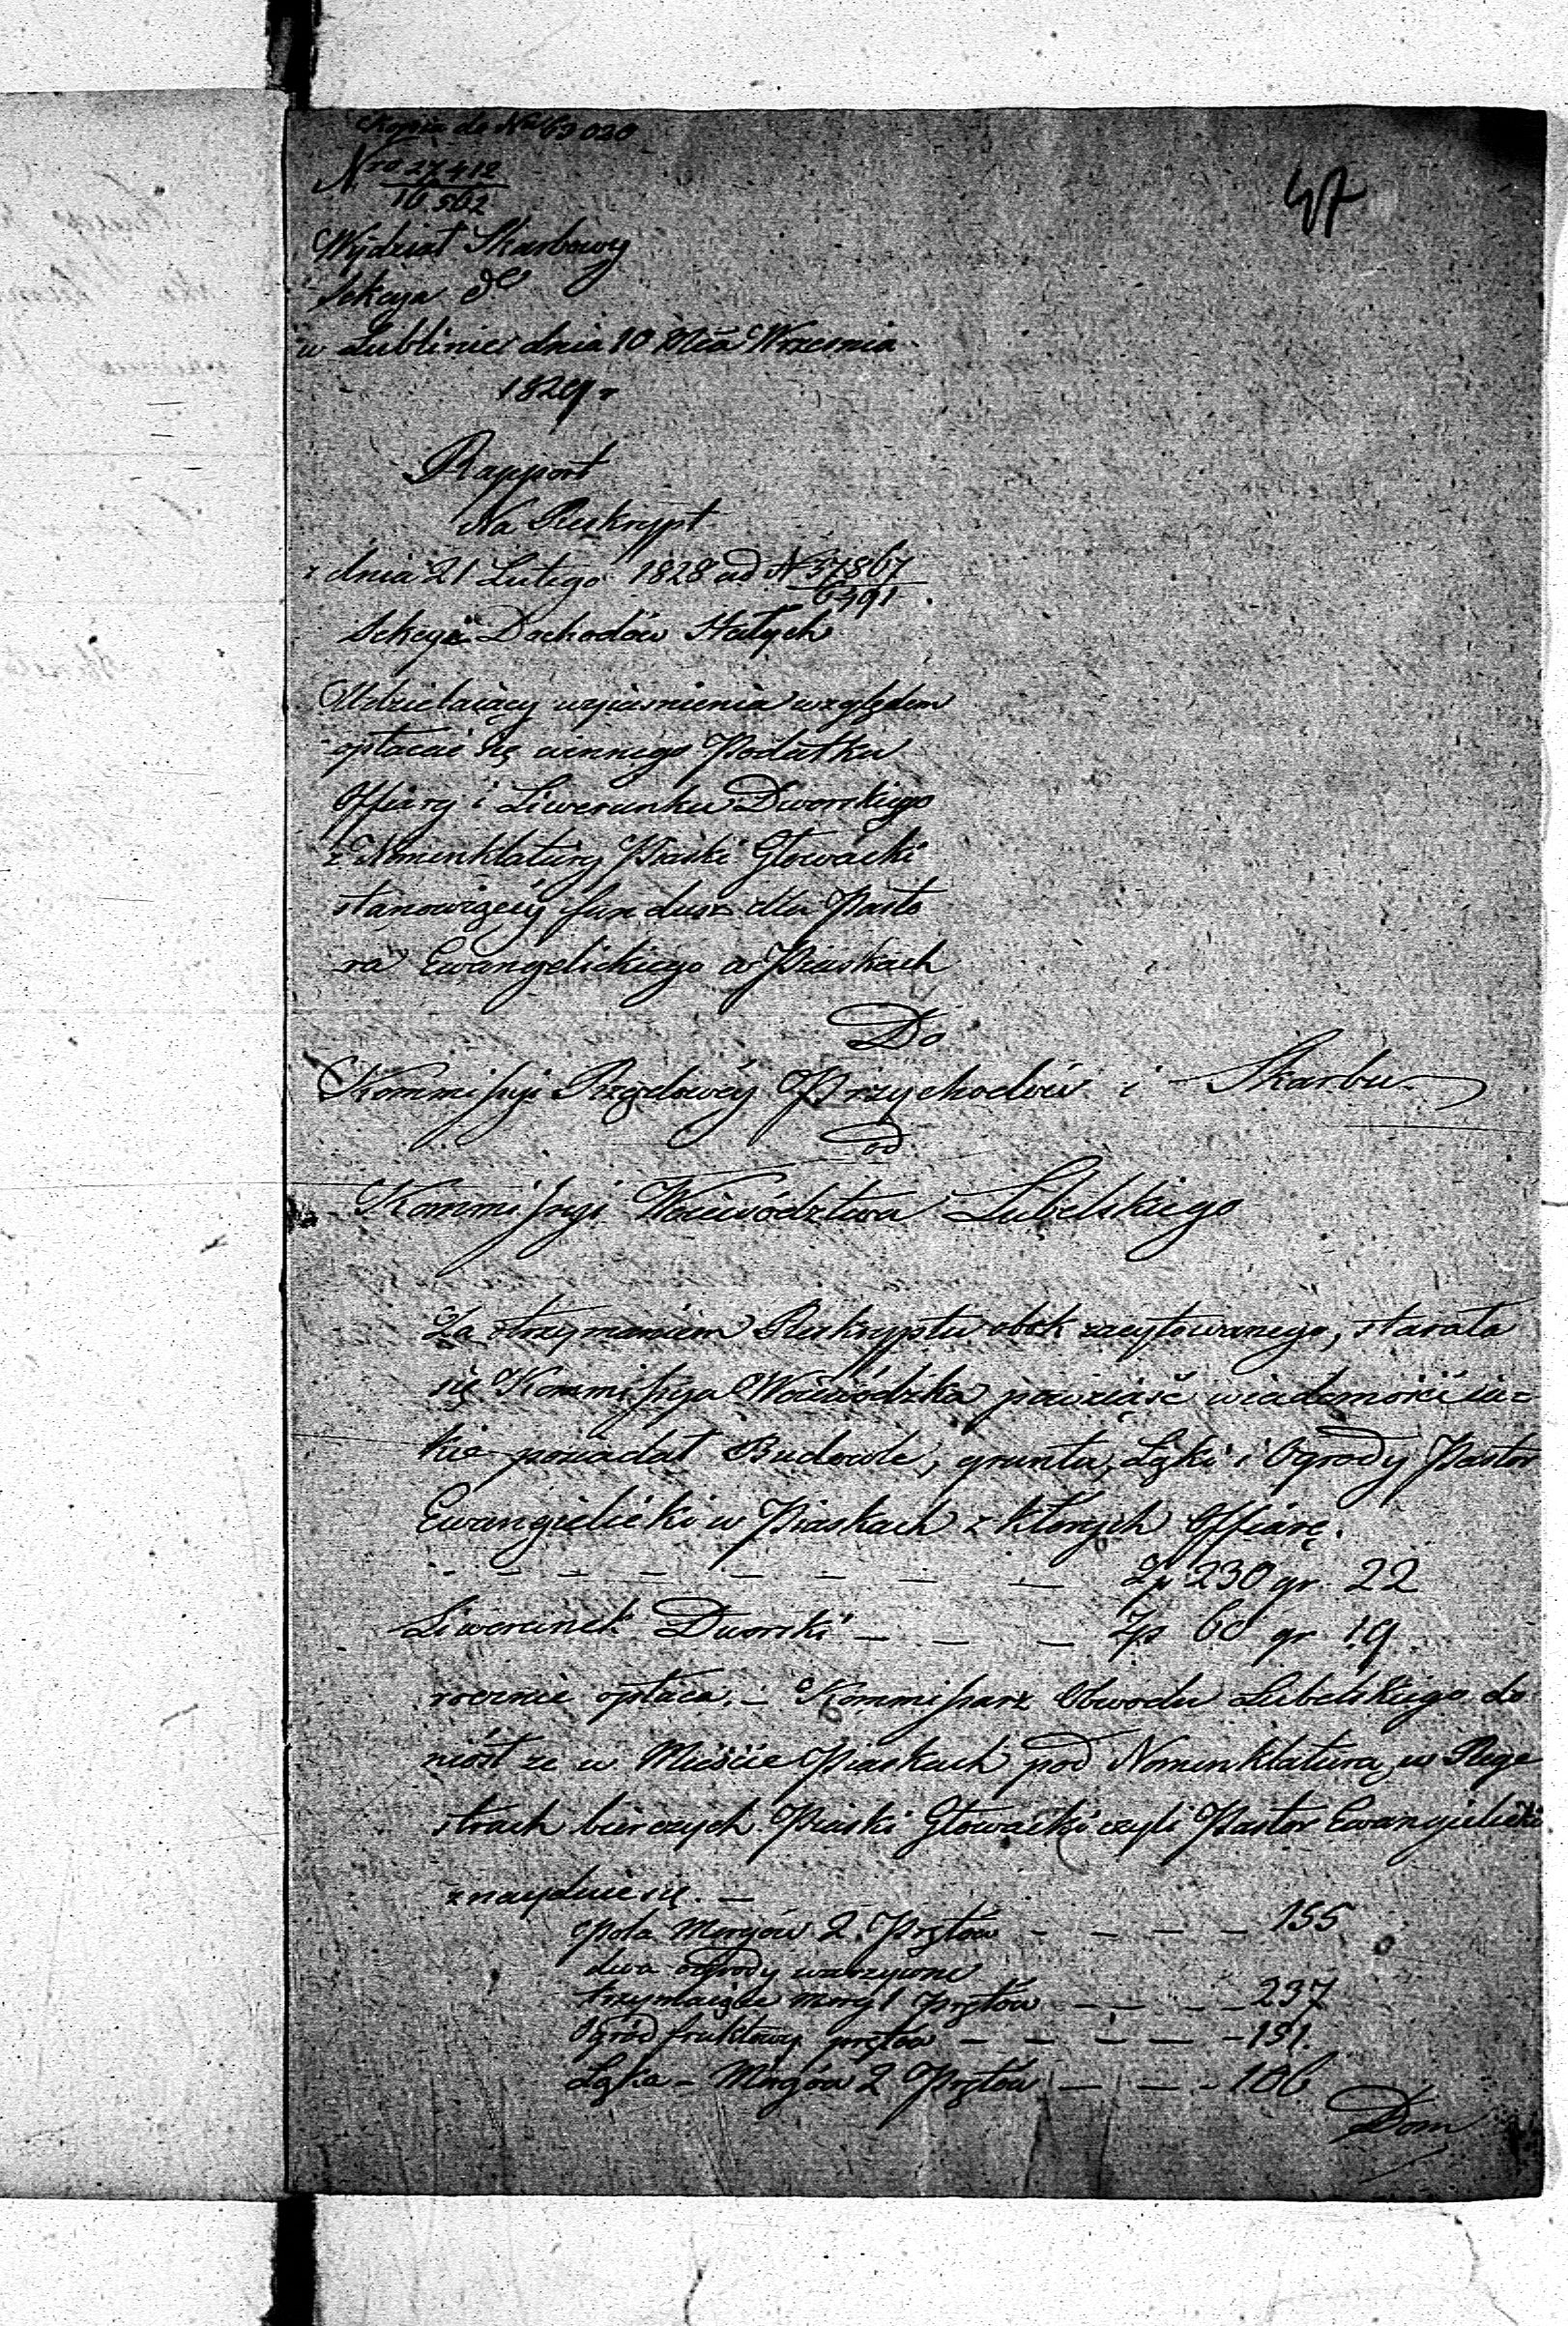 Kopia do Nru 63020
47
Nro 27412
16.562
Wydział Skarbowy
Sekcya
w Lublinie dnia 10 Mca Września
1829 r
Rapport
Na Reskrypt
z dnia 21 Lutego 1828 ad N 37867
6491
Sekcyi Dochodów Stałych
Udzielaiący wyiasnienia względem
opłacać się winnego Podatku
Offiary i Liwerunku Dworskiego
z Nomenklatury Piaski Głowacki
stanowiącey fundusz dla Pasto
ra Ewangelickiego w Piaskach
Do
Kommissyi Rządowéy Przychodów i Skarbu
od
Kommissyi Woiewództwa Lubelskiego
Za otrzymaniem Reskryptu obok zacytowanego, starała
się Kommissya Woiewódzka powziąść wiadomość ia=
kie posiadał Budowle, grunta, Łąki i Ogrody Pastor
Ewangielicki w Piaskach z których Offiarę.
- - - - - - - - Zp 230 gr. 22
Liwerunek Dworski - - - Zp 60 gr 19
rocznie opłaca. - Kommissarz Obwodu Lubelskiego do
niósł że w Mieście Piaskach pod Nomenklaturą w Rege
strach bierczych Piaski Głowacki czyli Pastor Ewangielicki
znayduie się. -
pola Morgów 2. Prętów - - - - 155
dwa ogrody warzywne
trzymaiące morg 1 prętów - - - - 237
Ogród fruktowy prętów - - - - - 151.
Łąka - Morgów 2 Prętów - - - 106
Dom